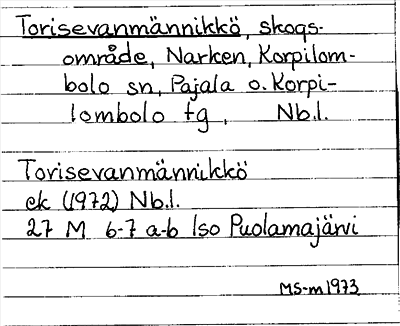 Torisevanmännikkö, skogs-
område, Narken, Korpilom-
bolo sn, Pajala o. Korpi-
lombolo tg, Nb.l.
Torisevanmännikkö
ek (1972) Nb.l.
27 M 6-7 a-b Iso Puolamajärvi
MS-m 1973